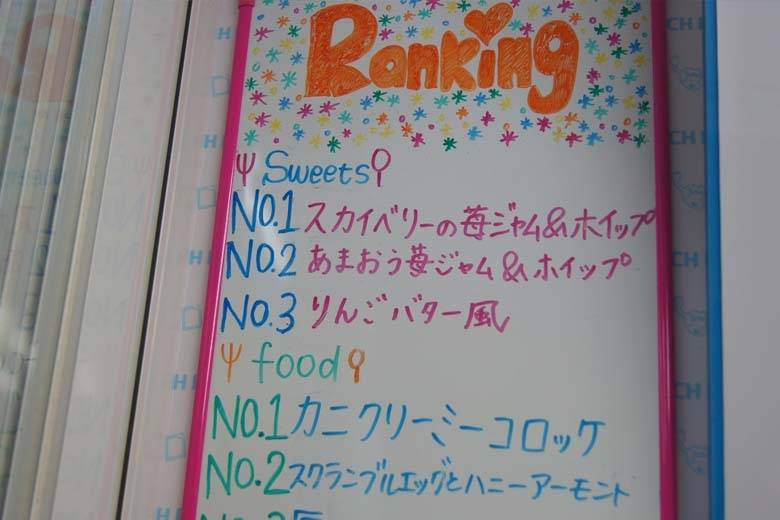 Ranking
Sweets
NO.1 スカイベリーの苺ジャム&ホイップ
NO.2 あまおう苺ジャム&ホイップ
NO.3 りんごバター風
food
NO.1 カニクリーミーコロッケ
NO.2 スクランブルエッグとハニーアーモンド